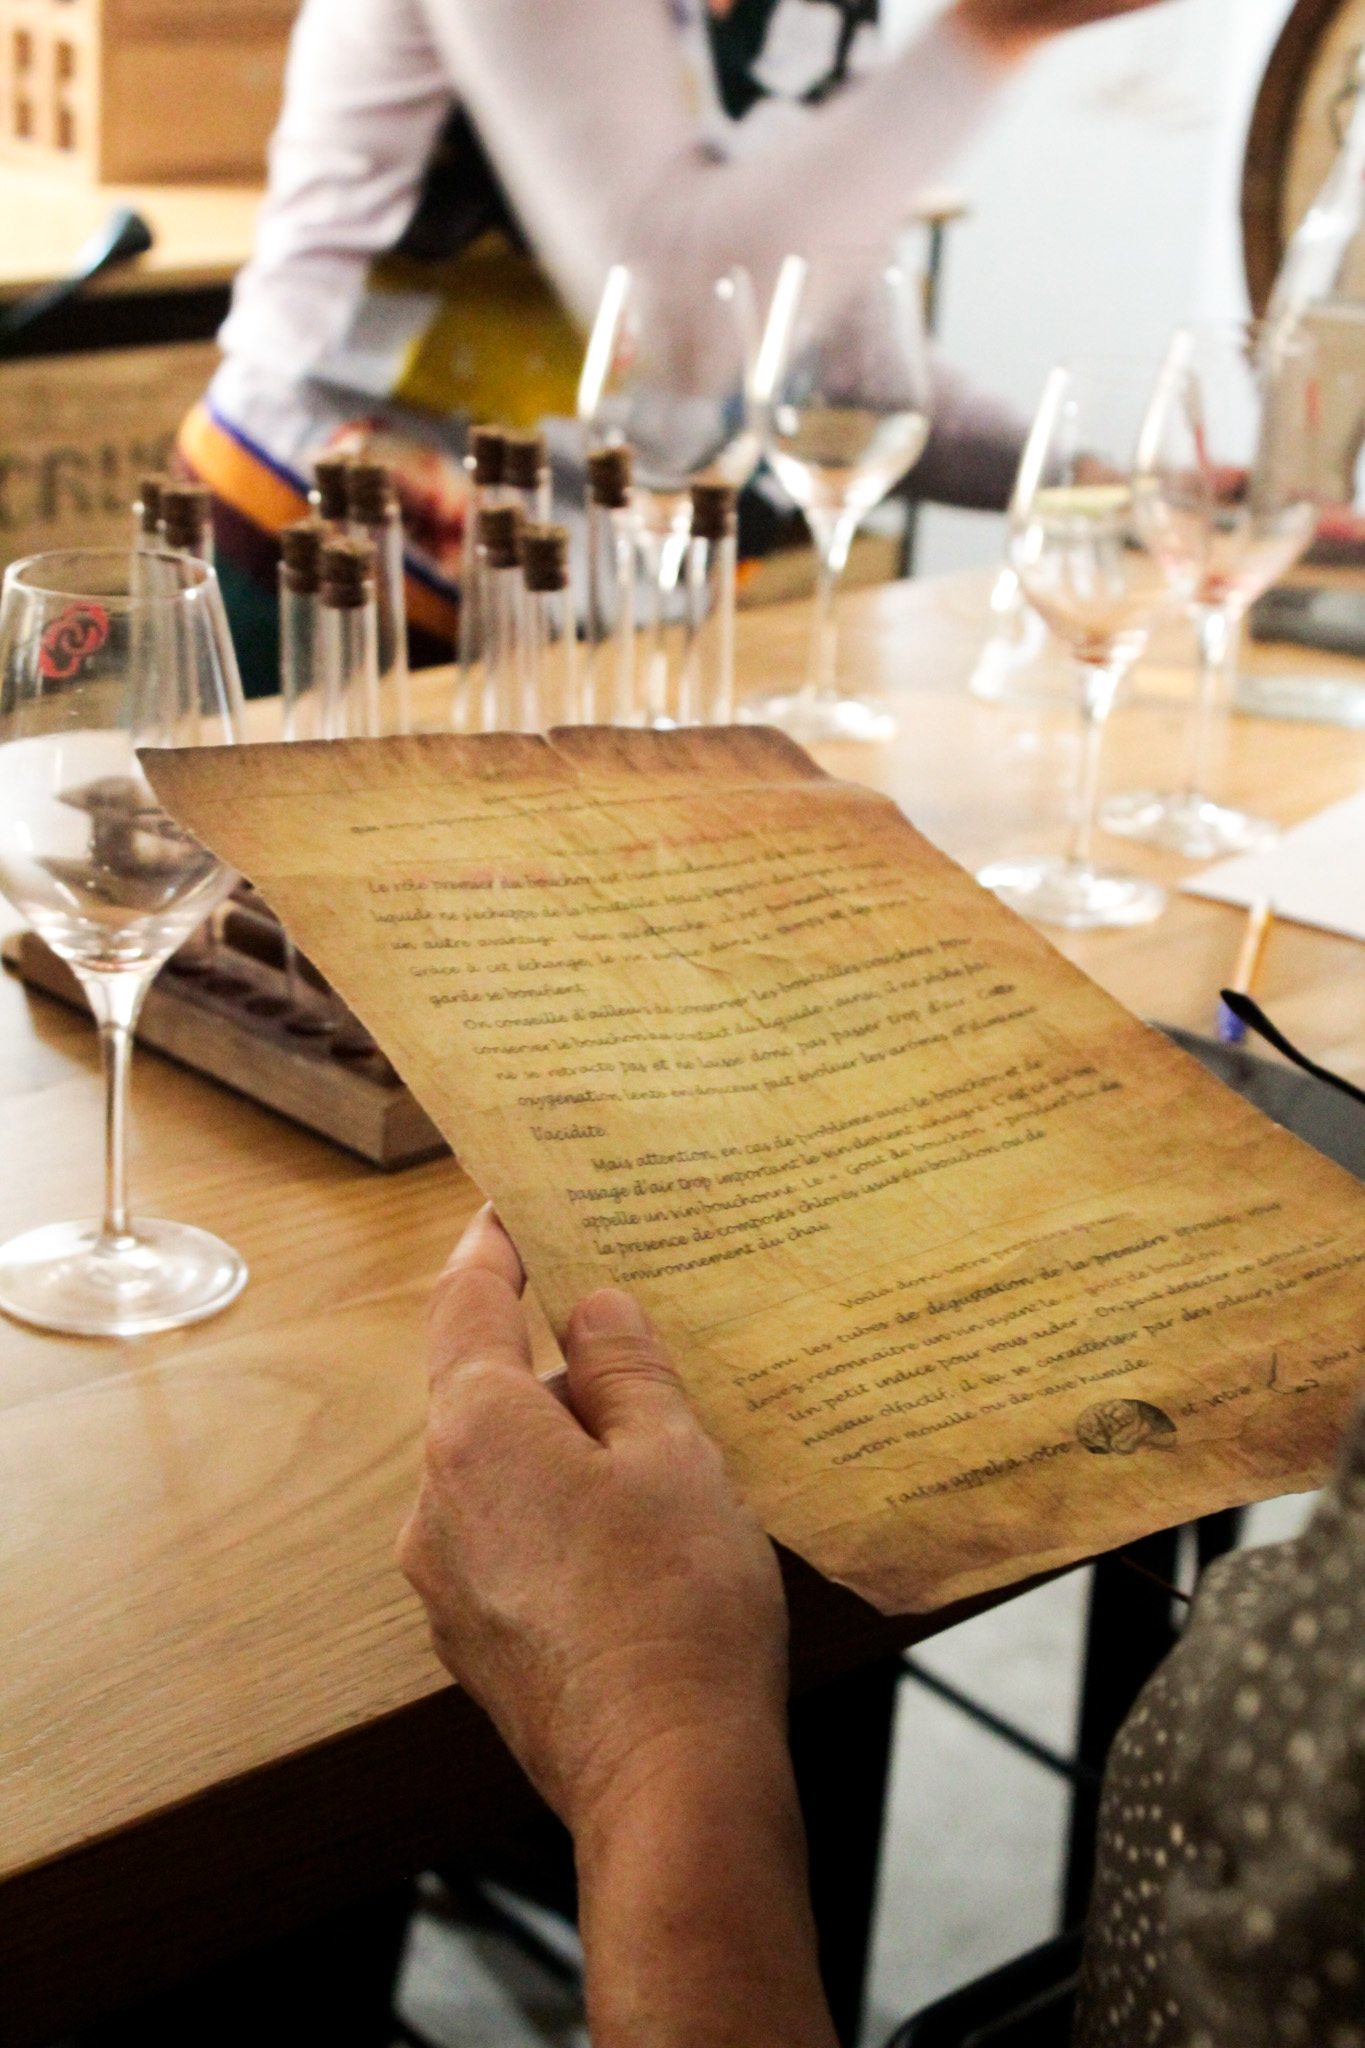 Le rôle premier du bouchon est bien
liquide ne s'échappe de la bouteille. Mais
un autre avantage : bien qu'étanche, il est perméable à
Grâce à cet échange, le vin évolue dans le temps et les vins de
garde se bonifient.
On conseille d'ailleurs de conserver les bouteilles couchées pour
conserver le bouchon au contact du liquide, ainsi, il ne sèche pas,
ne se rétracte pas et ne laisse donc pas passer trop d'air. Cette
oxygénation lente en douceur fait évoluer les arômes et diminuer
l'acidité.
Mais attention, en cas de problème avec le bouchon et de
passage d'air trop important le vin devient vinaigre. C'est ce qu'on
appelle un vin bouchonné. Le « Goût de bouchon » provient lui de
la présence de composés chlorés issus du bouchon ou de
l'environnement du chai.
Voilà donc votre première
Parmi les tubes de dégustation de la première épreuve, vous
devez reconnaître un vin ayant le « goût de bouchon ».
Un petit indice pour vous aider : On peut détecter ce défaut au
niveau olfactif, il va se caractériser par des odeurs de moisi
carton mouillé ou de cave humide.
Faites appel à votre et votre pour